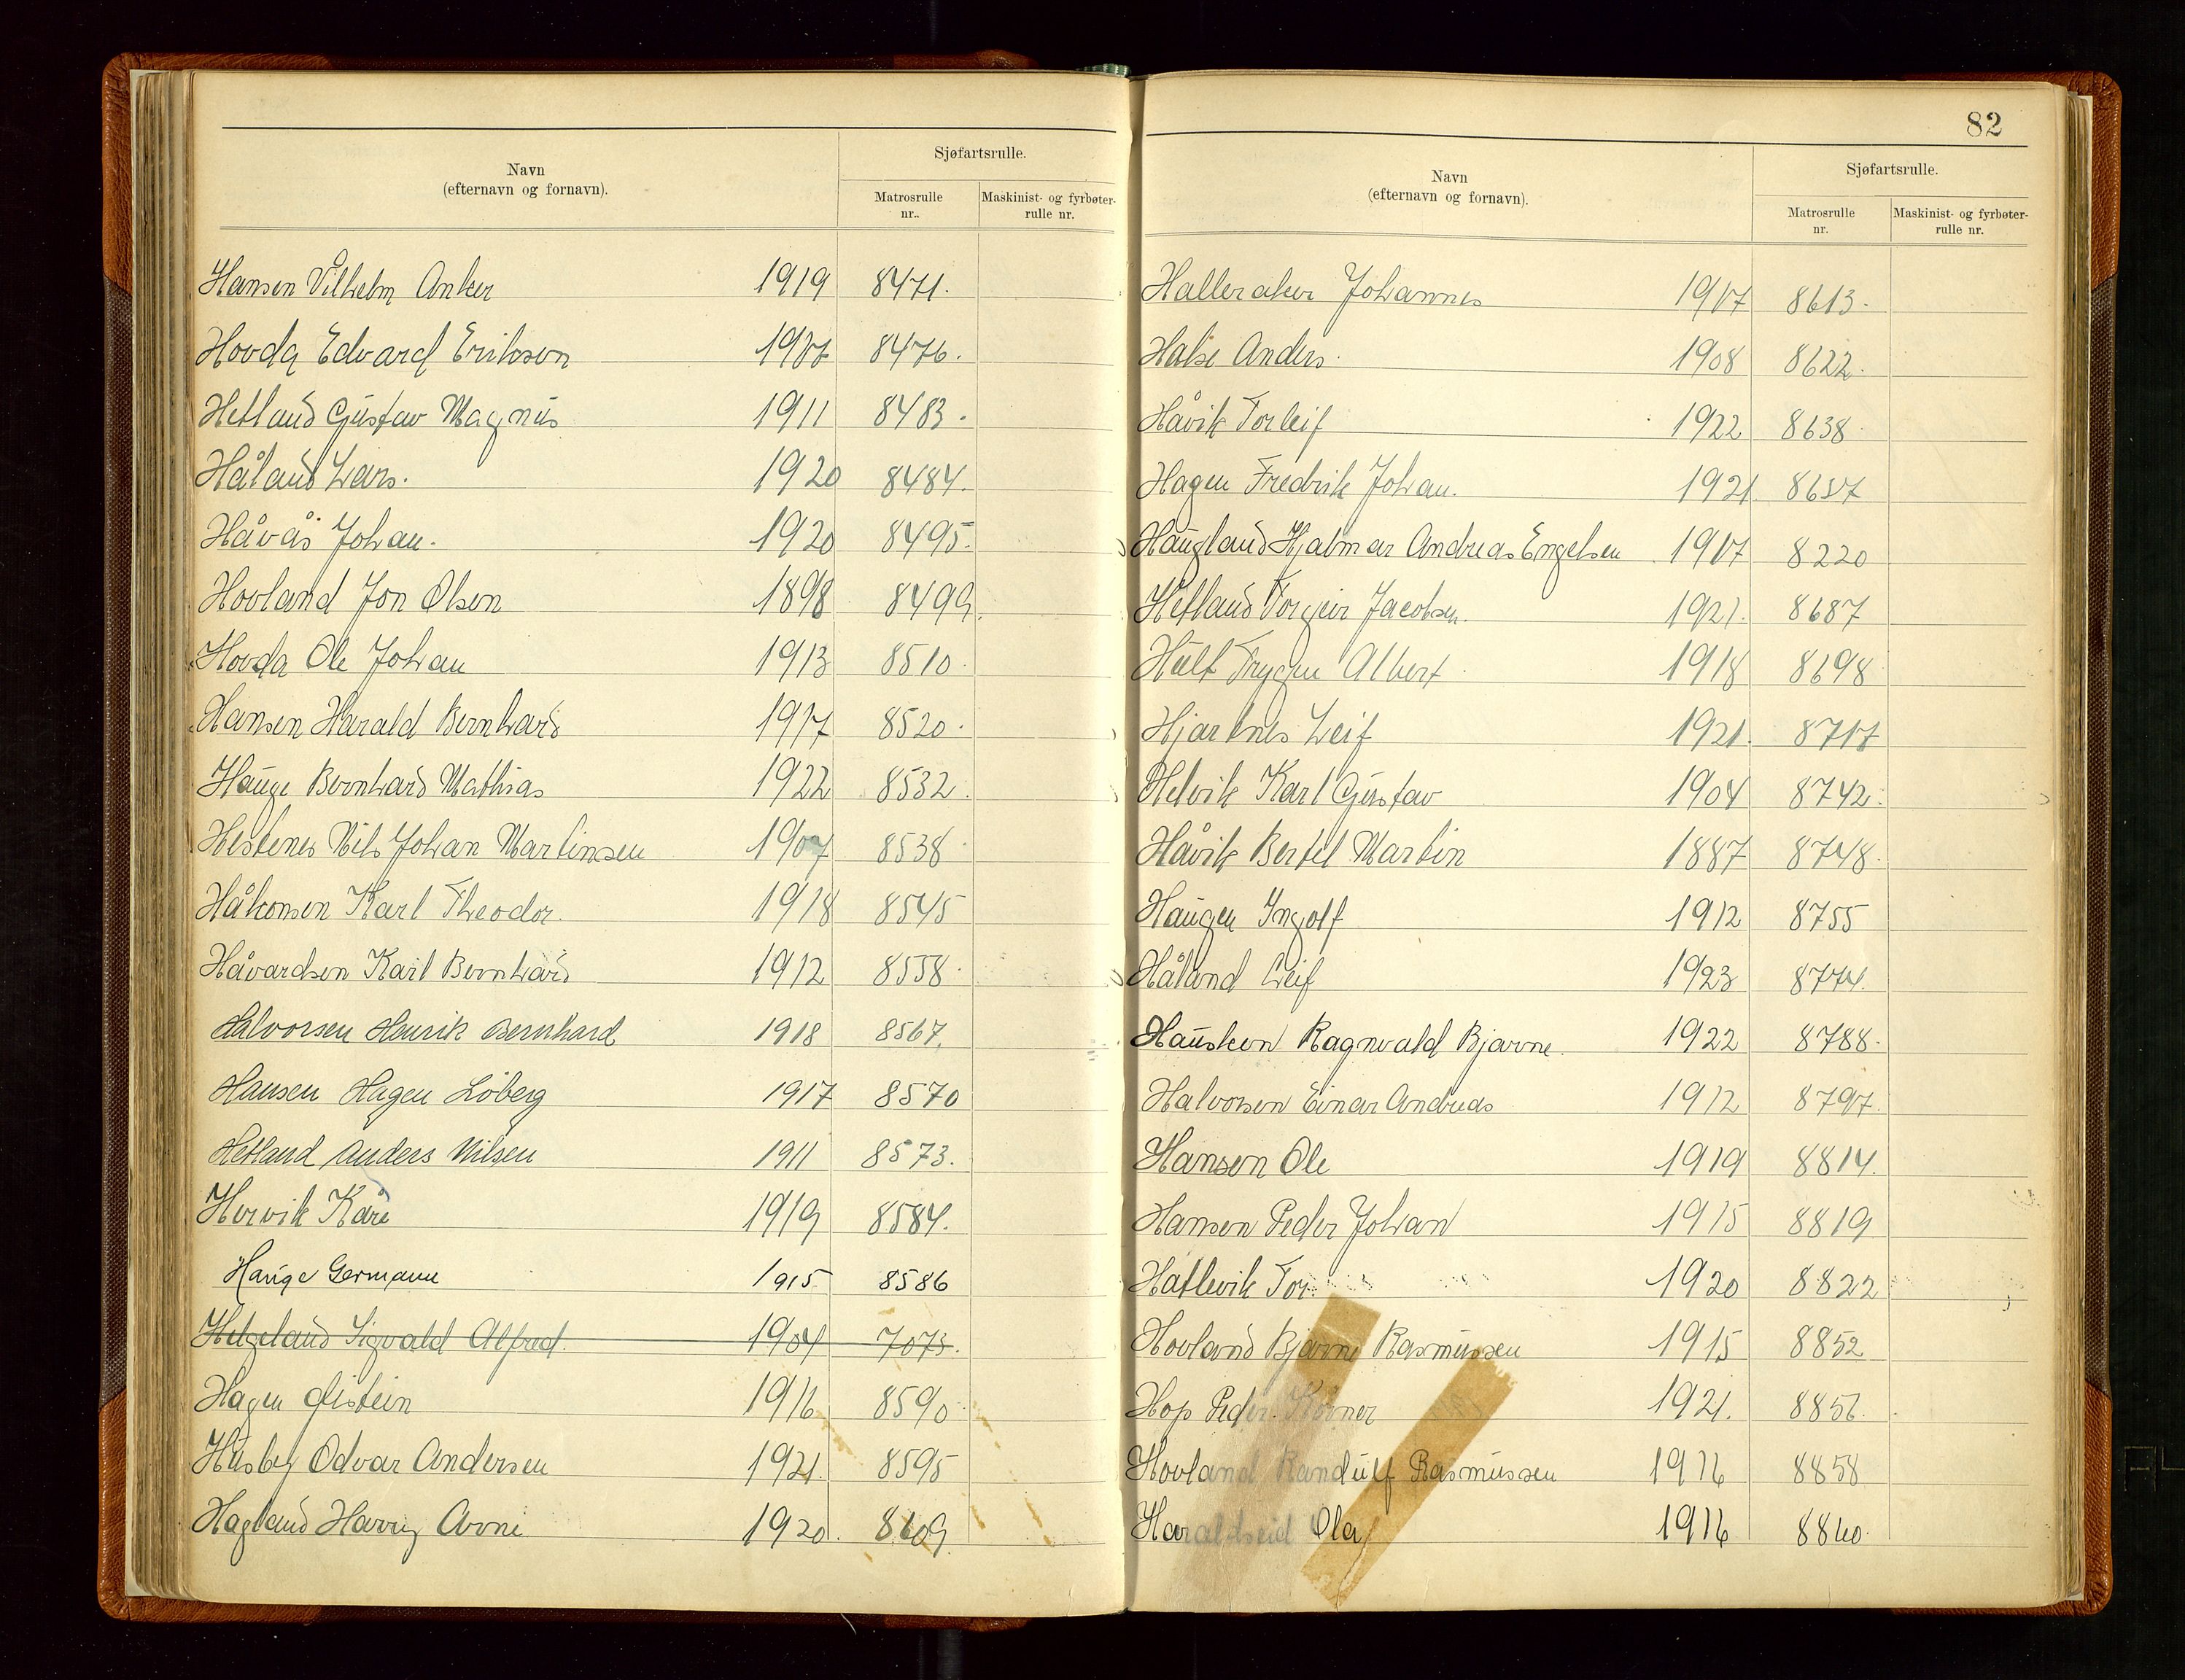 Navn
(efternavn og fornavn).
Sjøfartsrulle.
Matrosrulle nr..
Maskinist- og fyrbøter-rulle nr.
Hansen Vilhelm Anker 1919 8471.
Hovda Edvard Eriksen 1907 8476.
Hetland Gustav Magnus 1911 8483.
Håland Lars. 1920 8484.
Håvås Johan. 1920 8495.
Hovland Jon Olsen 1898 8499.
Hovda Ole Johan 1913 8510.
Hansen Harald Bernhard 1917 8520.
Hauge Bernhard Mathias 1922 8532.
Hestenes Nils Johan Martinsen 1907 8538
Håkonsen Karl Theodor. 1918 8545
Håvardsen Karl Bernhard 1912 8558.
Halvorsen Henrik Bernhard 1918 8567.
Hansen Hagen Löberg 1917 8570
Hetland Anders Nilsen 1911 8573.
Hervik Kåre 1919 8584.
Hauge Germann 1915 8586
Helgeland Sigvald Alfred. 1904 7073.
Hagen Øistein 1916 8590
Husby Odvar Andersen 1921. 8595
Hagland Harry Arne 1920. 8609.
82
Navn
(efternavn og fornavn).
Sjøfartsrulle.
Matrosrulle nr.
Maskinist- og fyrbøter-rulle nr.
Halleraker Johannes 1917 8613.
Halse Anders. 1908 8622.
Håvik Torleif 1922 8638.
Hagen Fredrik Johan. 1921 8657
Haugland Hjalmar Andreas Engelsen 1917 8220
Hetland Torgeir Jacobsen. 1921. 8687
Hult Trygve Albert 1918 8698
Hjartnes Leif 1921. 8717
Helvik Karl Gustav 1904 8742.
Håvik Bertel Martin 1887 8748.
Haugen Ingolf 1912 8755
Håland Leif 1923 8774.
Hausken Ragnvald Bjarne. 1922 8788.
Halvorsen Einar Andreas 1912 8797.
Hansen Ole 1919 8814.
Hansen Peder Johan 1915 8819
Hatlevik Tor. 1920 8822
Hovland Bjarne Rasmussen 1915 8852
Hop Peder 1921. 8856.
Hovland Randulf Rasmussen 1916 8858
Haraldseid Olaf 1916 8860.